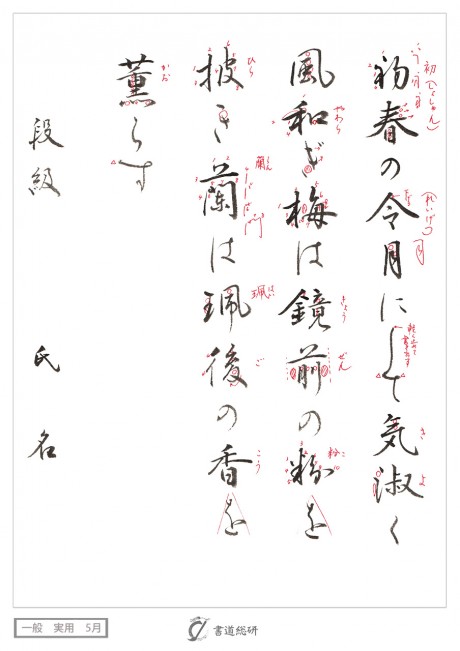 初春の令月にして気淑く
風和ぎ梅は鏡前の粉を
披き蘭は珮後の香を
薫らす
段級 氏名
初(しょしゅん)
(れいげつ)
月
き
よ
やわら
きょう
ぜん
こ
ひら
蘭
らん
珮
はい
ご
こう
かお
一般 実用 5月
書道総研